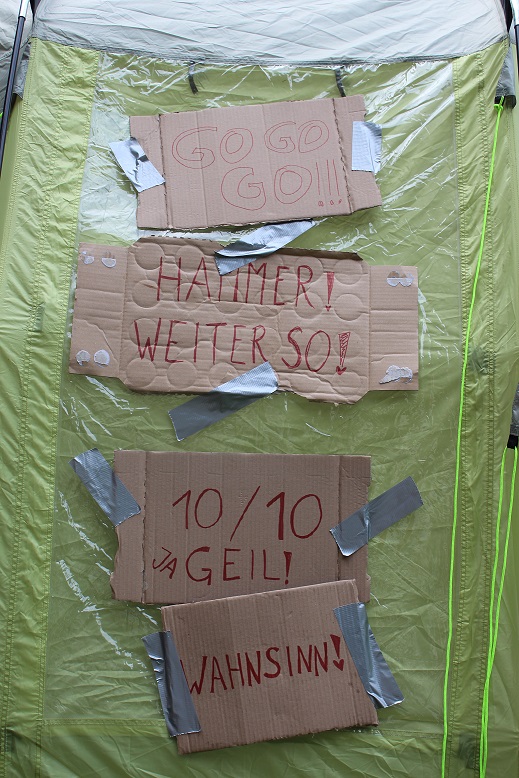 GO GO
GO!!!
HAMMER!
WEITER SO!
10/10
JA GEIL!
WAHNSINN!